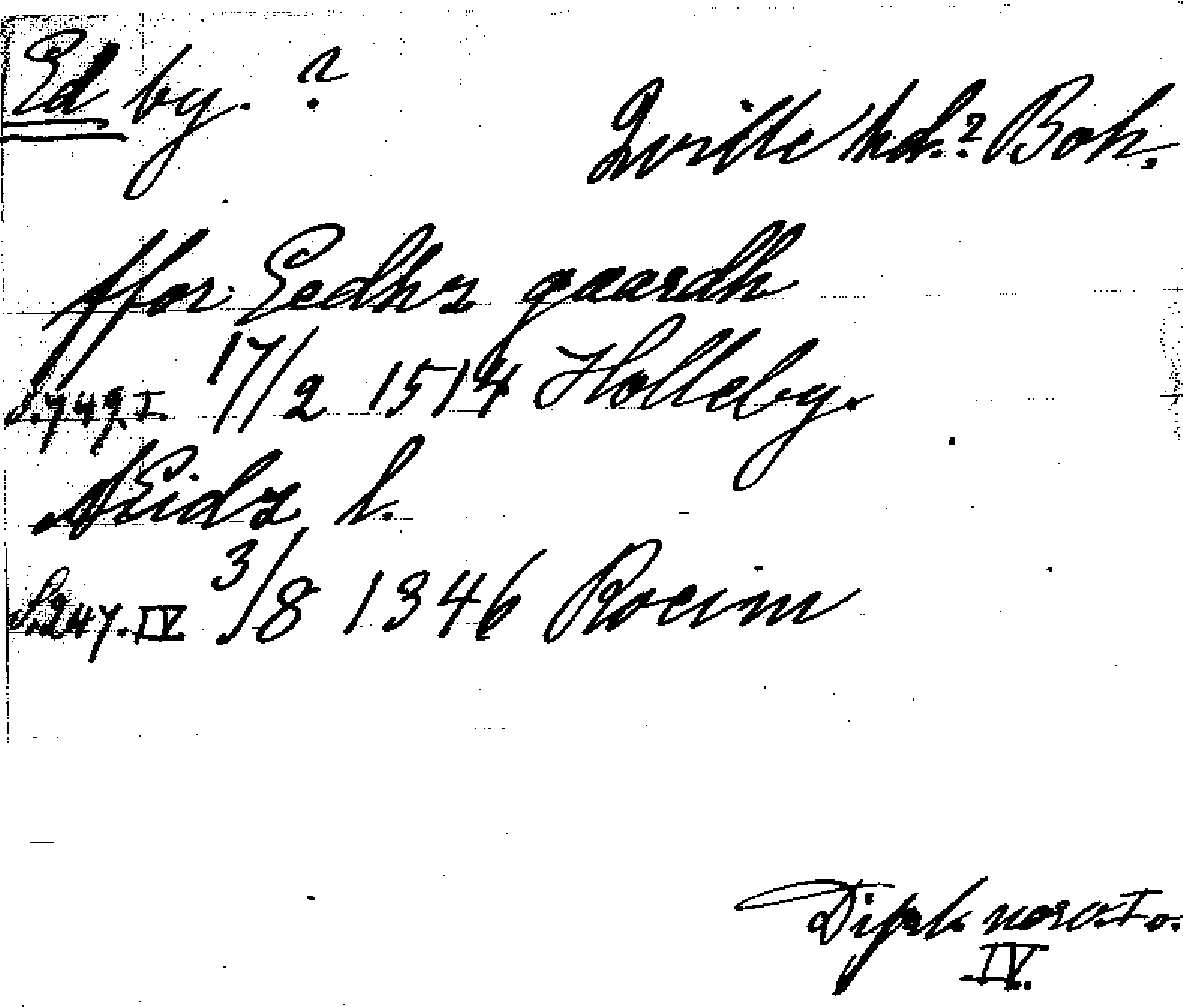 Ed by. ?
Qville hd.? Boh.
ffor Eedhz gaardh
S. 749. I. 17/2 1514 Holleby.
Eidz k.
S. 247. IV 3/8 1346 Roeim
Dipl. norv. I o.
IV.